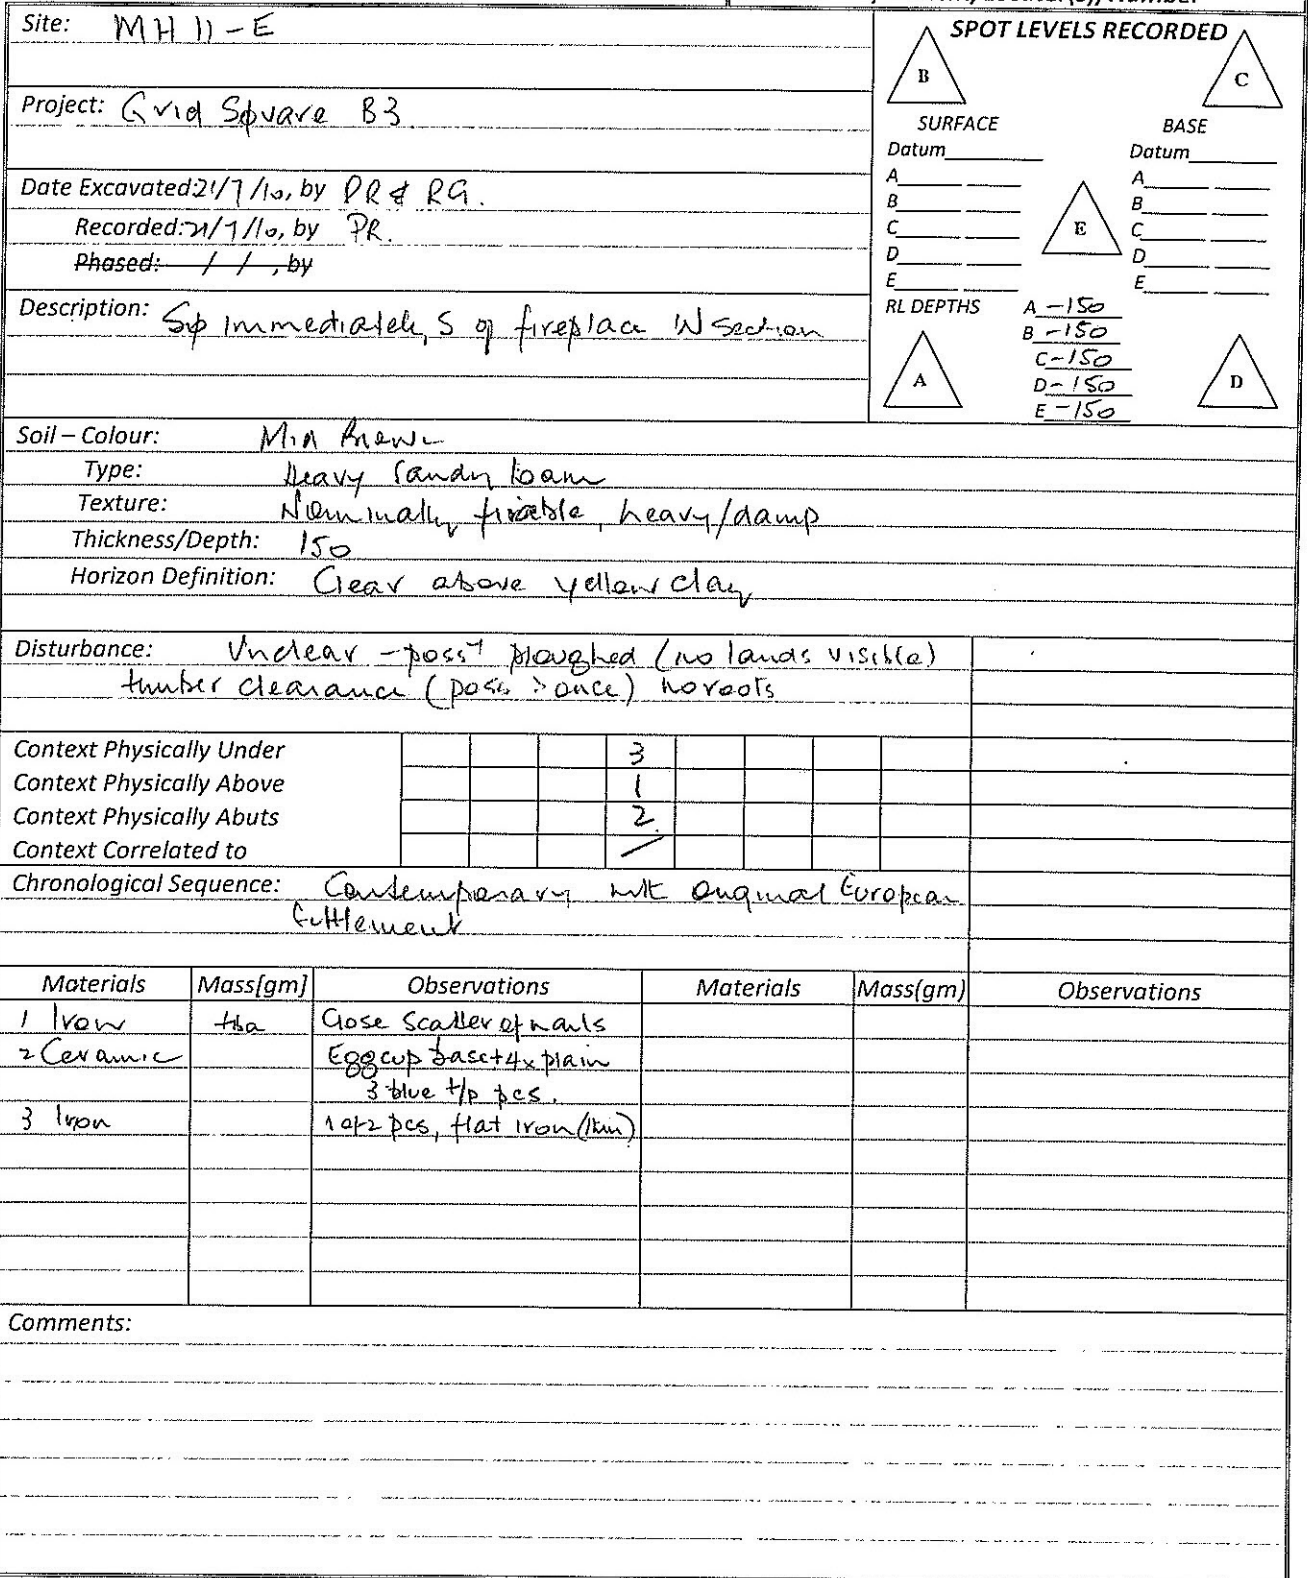 Site: MH 11-E
SPOT LEVELS RECORDED
B
C
Project: Grid Square B3
SURFACE
BASE
Datum
Datum
A
A
B
B
E
C
C
D
D
E
E
Date Excavated: 21/7/10, by PR & RG.
Recorded: 21/7/10, by PR.
Phased: / / , by
Description: Sq immediately S of fireplace W section
RL DEPTHS
A -150
B -150
C -150
D -150
E -150
A
D
Soil – Colour: Mid Brown
Type: Heavy sandy loam
Texture: Nominally friable, heavy/damp
Thickness/Depth: 150
Horizon Definition: Clear above yellow clay
Disturbance: Unclear - poss ploughed (no lands visible)
timber clearance (poss > once) no roots
Context Physically Under 3
Context Physically Above 1
Context Physically Abuts 2
Context Correlated to /
Chronological Sequence: Contemporary with original European
settlement
Materials Mass[gm] Observations Materials Mass(gm) Observations
1 Iron tba Close scatter of nails
2 Ceramic Eggcup base + 4x plain
3 blue t/p pcs.
3 Iron 1 of 2 pcs, flat iron (thin)
Comments: